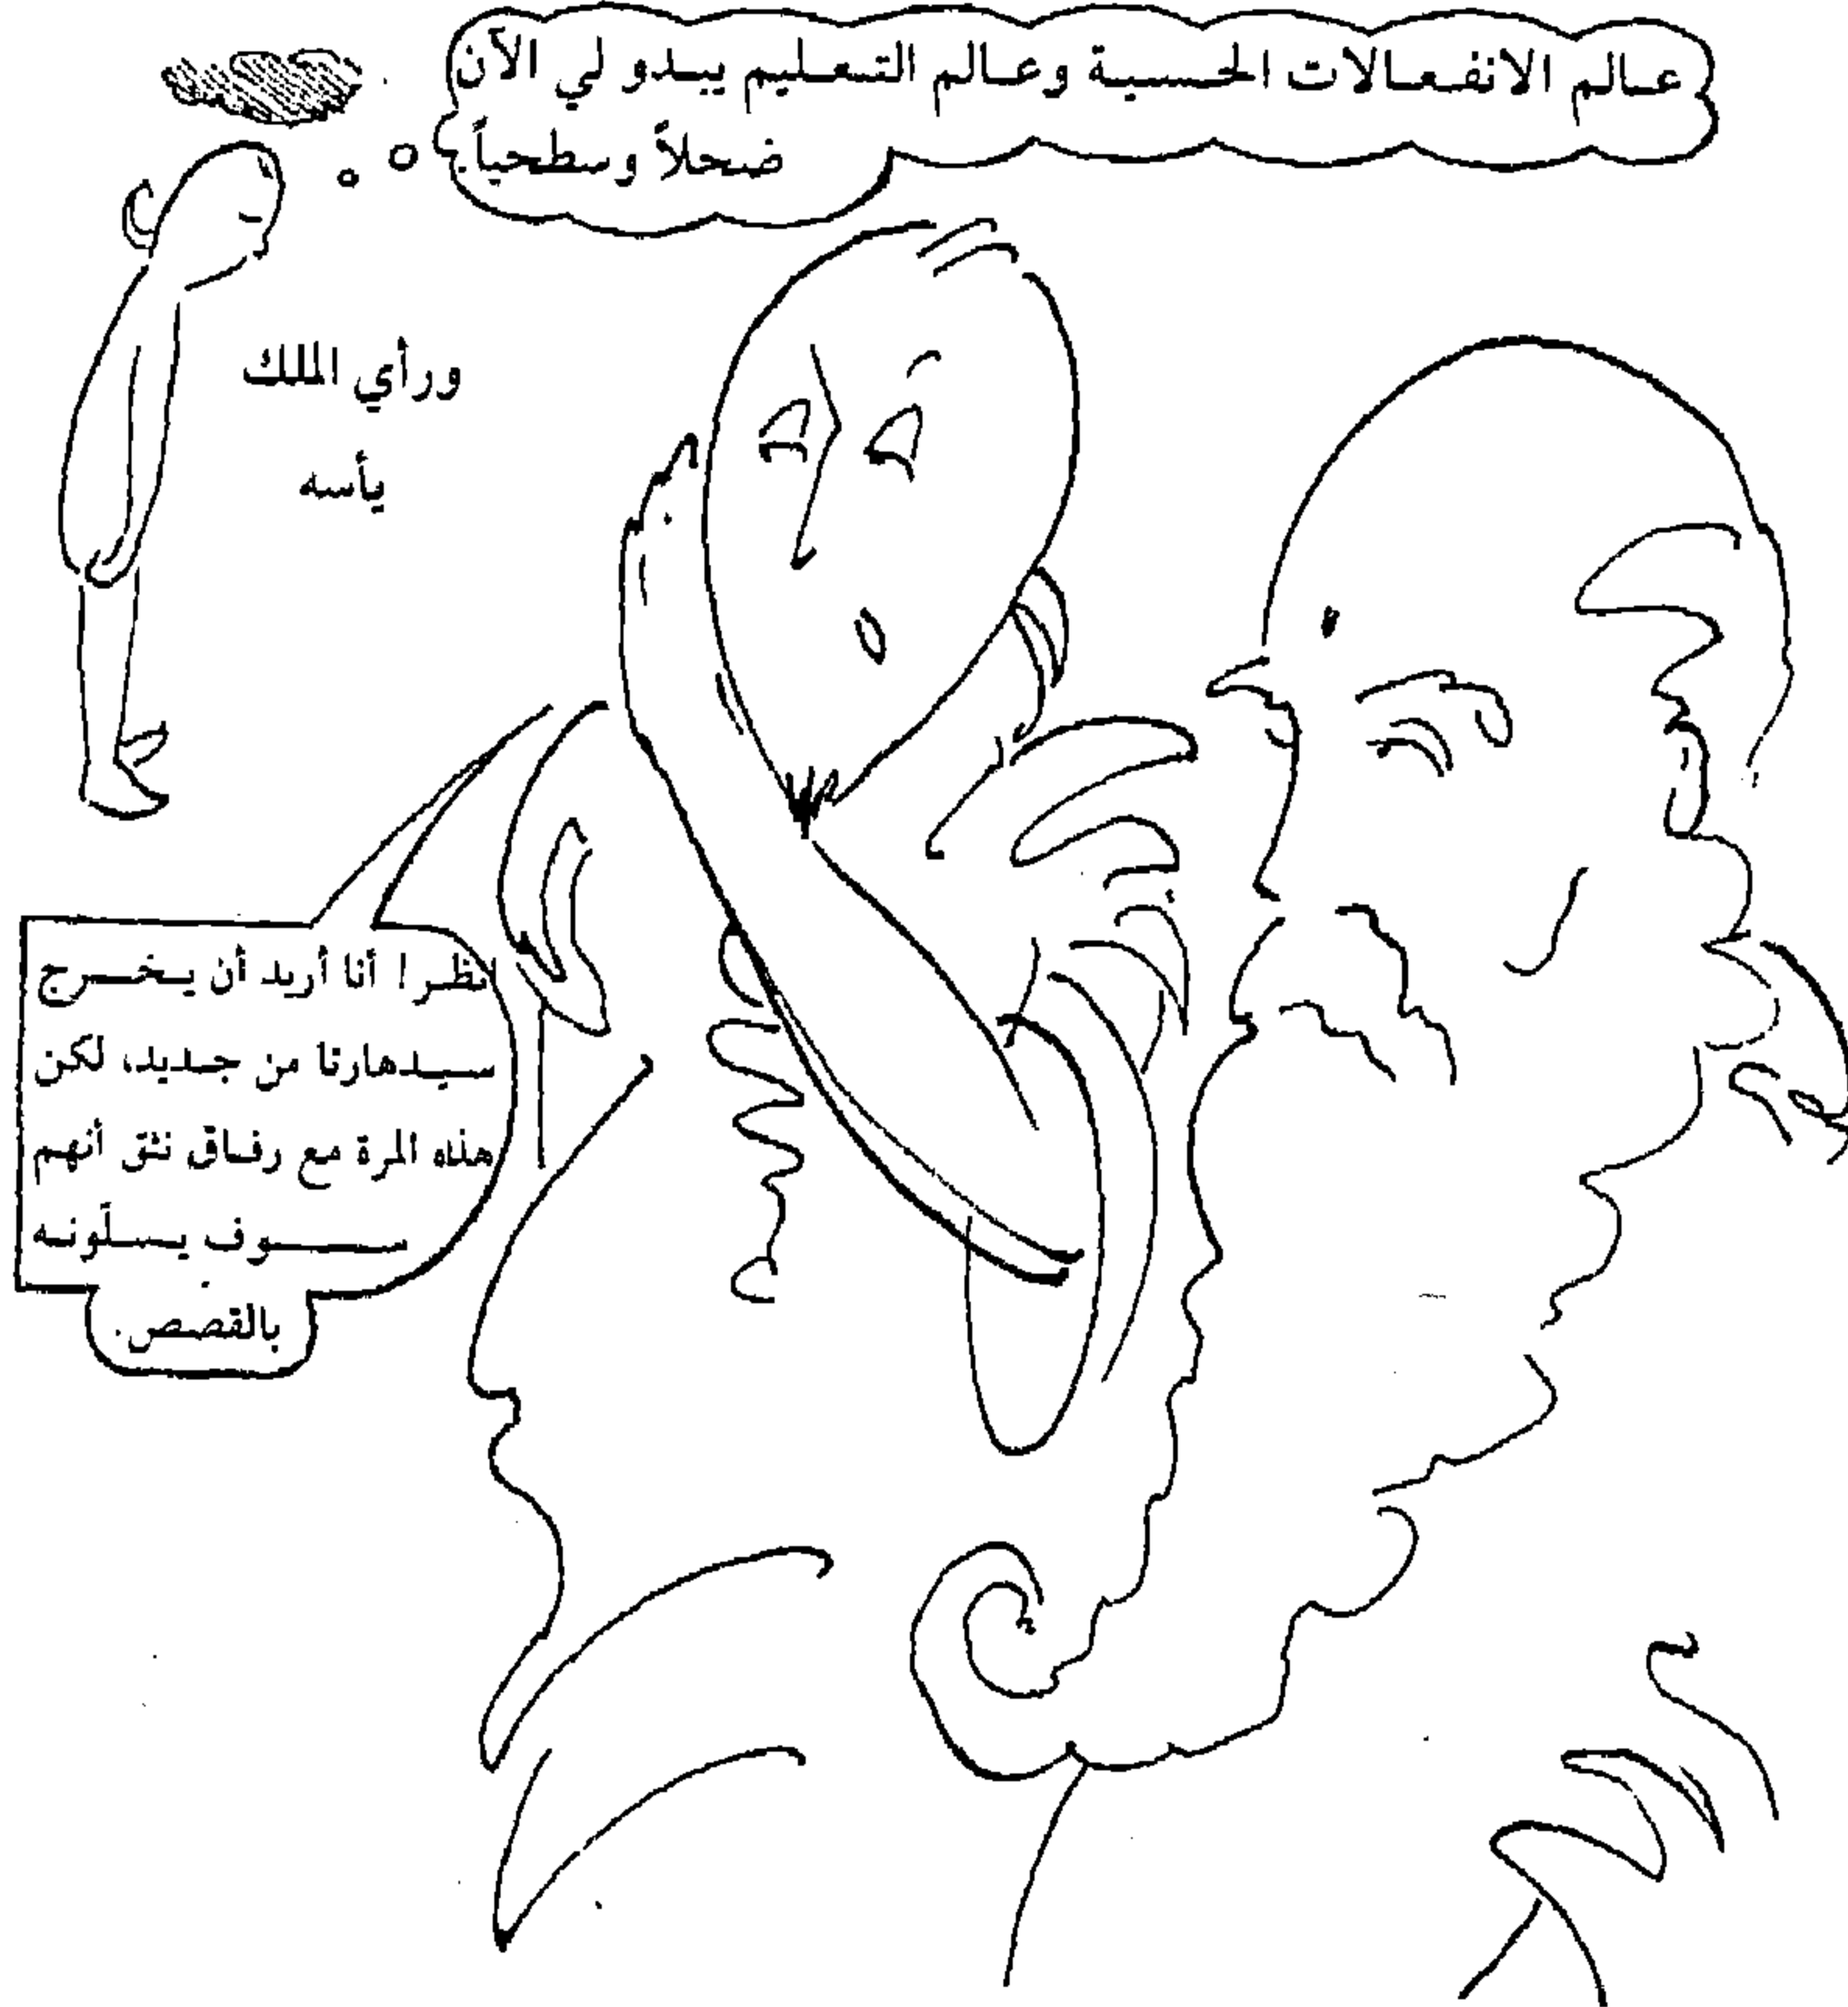 عالم الانفعالات الحسية وعالم التعليم يبدو لي الآن
ضحلاً وسطحياً.
ورأي الملك
يأسه
انظر ! أنا أريد أن يخرج
سيدهارتا من جديد، لكن
هذه المرة مع رفاق نثق أنهم
سوف يسلونه
بالقصص.